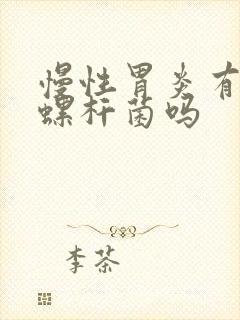 慢性胃炎有
螺杆菌吗
李茶